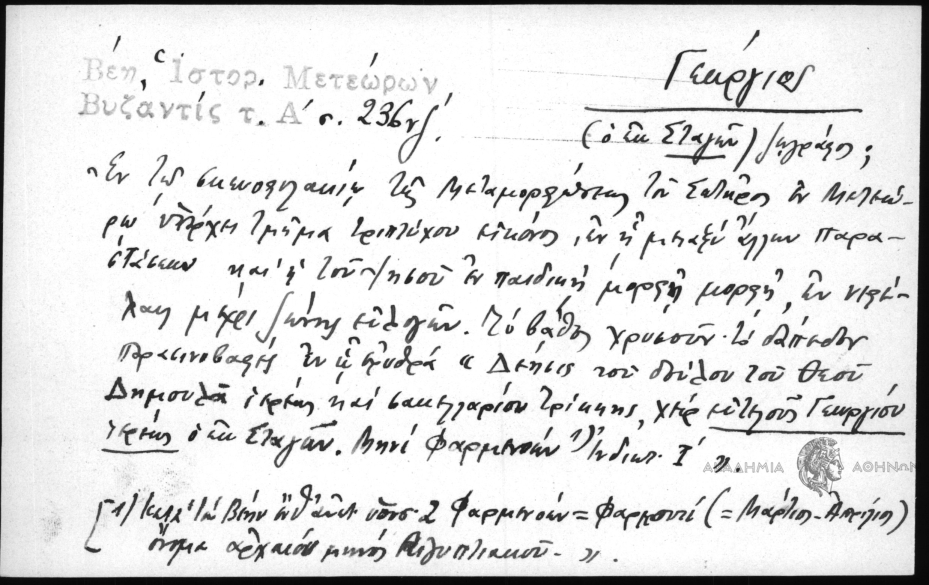 Γεώργιος
Βέη, Ἱστορ. Μετεώρων
Βυζαντίς τ. Α' σ. 236 νζ'.
(ὁ ἐκ Σταγῶν) ζωγράφος;
"Ἐν τῷ σκευοφυλακίῳ τῆς Μεταμορφώσεως τοῦ Σωτῆρος ἐν Μετεώ-
ρῳ ὑπάρχει τμῆμα τριπτύχου εἰκόνος, ἐν ᾗ μεταξὺ ἄλλων παρα-
στάσεων καὶ ἡ τοῦ Ἰησοῦ ἐν παιδικῇ μορφῇ μορφή, ἐν νεφέ-
λαις μέχρι ζώνης εὐλογῶν. Τὸ βάθος χρυσοῦν· τὸ δάπεδον
πρασινοβαφές ἐν ᾧ ἐρυθρᾷ " Δέησις τοῦ δούλου τοῦ Θεοῦ
Δημουλᾶ ἱερέως καὶ σακελλαρίου Τρίκκης, χεὶρ εὐτελοῦς Γεωργίου
ἱερέως ὁ ἐκ Σταγῶν. Μηνὶ Φαρμενοῶν 1) Ἰνδικτ. Ι' ".
ΑΚΑΔΗΜΙΑ ΑΘΗΝΩΝ
[1) Κατὰ τὸν Βέην ἔνθ' ἀνωτ. 2 Φαρμενοῶν = Φαρμουτί (= Μάρτιος - Ἀπρίλιος)
ὄνομα ἀρχαίου μηνὸς Αἰγυπτιακοῦ - ".